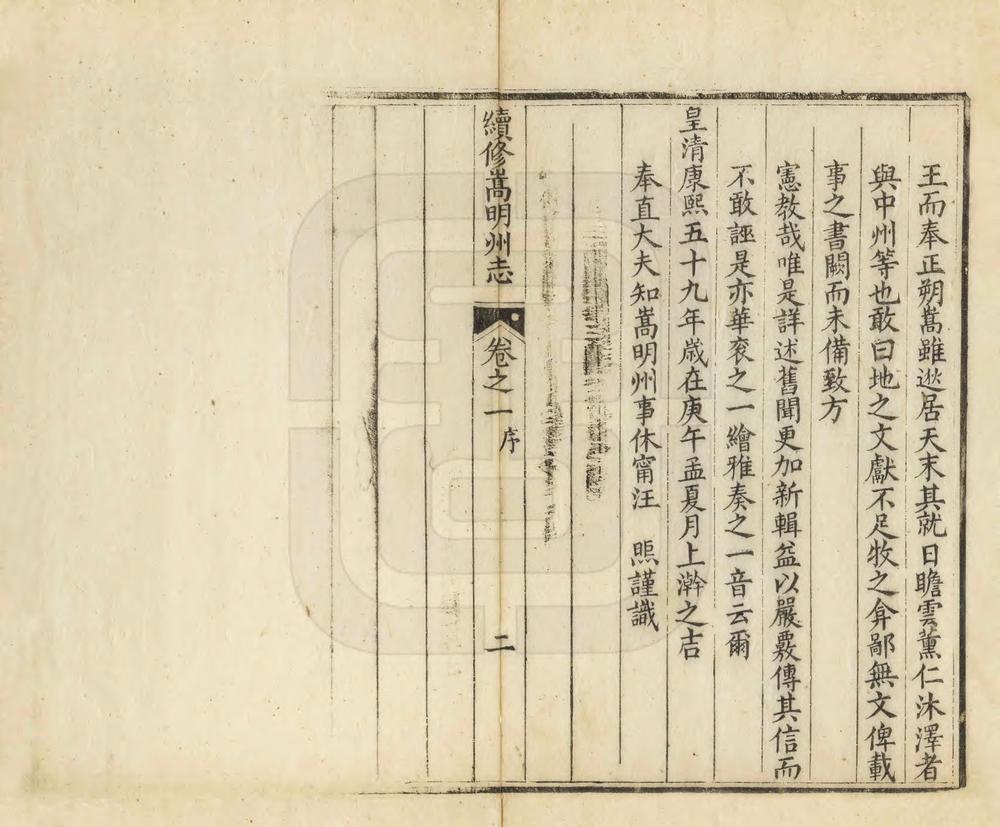 王而奉正朔嵩雖逖居天末其就日瞻雲薰仁沐澤者
與中州等也敢曰地之文獻不足牧之弇鄙無文俾載
事之書闕而未備致方
憲教哉唯是詳述舊聞更加新輯益以嚴覈傳其信而
不敢誣是亦華袞之一繪雅奏之一音云爾
皇清康熙五十九年歲在庚午孟夏月上澣之吉
奉直大夫知嵩明州事休甯汪 熈謹識
續修嵩明州志 卷之一 序 二